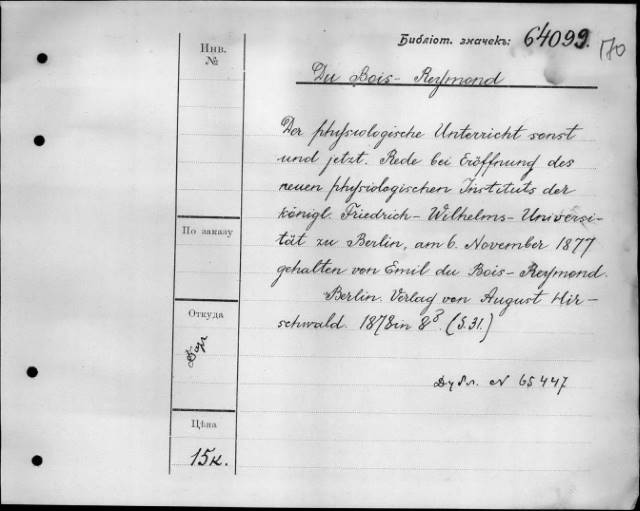 Библіот. значекъ: 64099.
170
Инв.
№
Du Bois-Reymond
Der physiologische Unterricht sonst
und jetzt. Rede bei Eröffnung des
neuen physiologischen Instituts der
königl. Friedrich-Wilhelms-Universi-
tät zu Berlin, am 6. November 1877
gehalten von Emil du Bois-Reymond.
Berlin. Verlag von August Hir-
schwald. 1878 in 8º. (S. 31.)
По заказу
Откуда
Дубл. N 65447
Цѣна
15к.